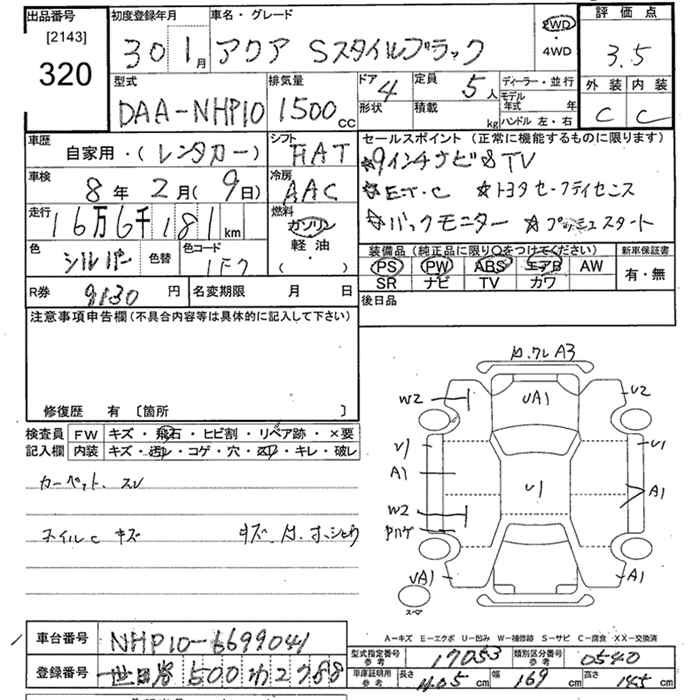 出品番号
[2143]
320
初度登録年月
30 1月
車名・グレード
アクア Sスタイルブラック
2WD
・
4WD
評価点
3.5
外装 内装
C C
型式
DAA-NHP10
排気量
1500cc
ドア 4
形状
定員 5人
積載 kg
ディーラー・並行
モデル年式 年
ハンドル 左・右
車歴
自家用・(レンタカー)
シフト
FAT
車検
8年 2月(9日)
冷房
AAC
走行
16万6千181km
燃料
ガソリン
軽油
(・)
色 シルバー
色替
色コード 1F7
セールスポイント (正常に機能するものに限ります)
☆9インチナビ&TV
☆E・T・C ☆トヨタセーフティセンス
☆バックモニター ☆プッシュスタート
装備品 (純正品に限り○をつけてください)
PS PW ABS エアB AW
SR ナビ TV カワ
新車保証書
有・無
R券 9130円
名変期限 月 日
後日品
注意事項申告欄(不具合内容等は具体的に記入して下さい)
修復歴 有 〔箇所 〕
検査員記入欄
FW キズ・飛石・ヒビ割・リペア跡・×要
内装 キズ・汚レ・コゲ・穴・スレ・キレ・破レ
カーペット、スレ
ホイルc キズ
W2
UA1
U2
U1
A1
U1
A1
W2
UA1
A1
スペア
A-キズ E-エクボ U-凹み W-補修跡 S-サビ C-腐食 XX-交換済
車台番号 NHP10-6699041
登録番号 500 わ
型式指定番号 参考 17053
類別区分番号 参考 0540
車庫証明用 参考
長さ 405cm
幅 169cm
高さ 145cm